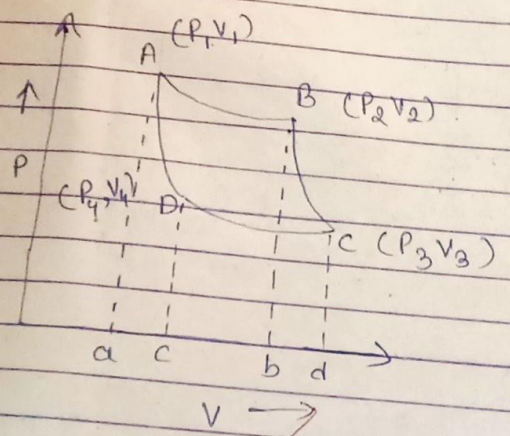 A (P₁V₁)
B (P₂V₂)
P
(P₄,V₄) D
C (P₃V₃)
a c b d
V